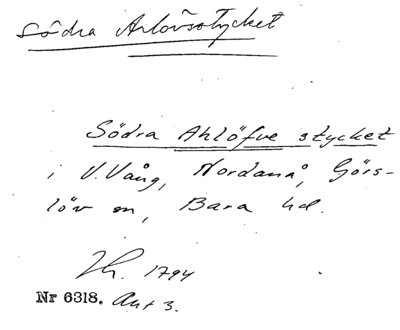 Södra Arlövsstycket
Södra Ahlöfve stycket
i V. Vång, Nordanå, Görs-
löv sn, Bara hd.
1794
Nr 6318. Akt 3.